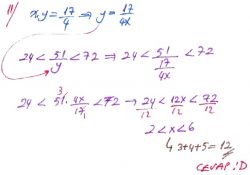 11/ x.y = 17/4 ⇒ y = 17/4x
24 < 51/y < 72 ⇒ 24 < 51/(17/4x) < 72
24 < 51 . 4x/17 < 72 → 24/12 < 12x/12 < 72/12
3 1
2 < x < 6
↳ 3+4+5 = 12
CEVAP: D